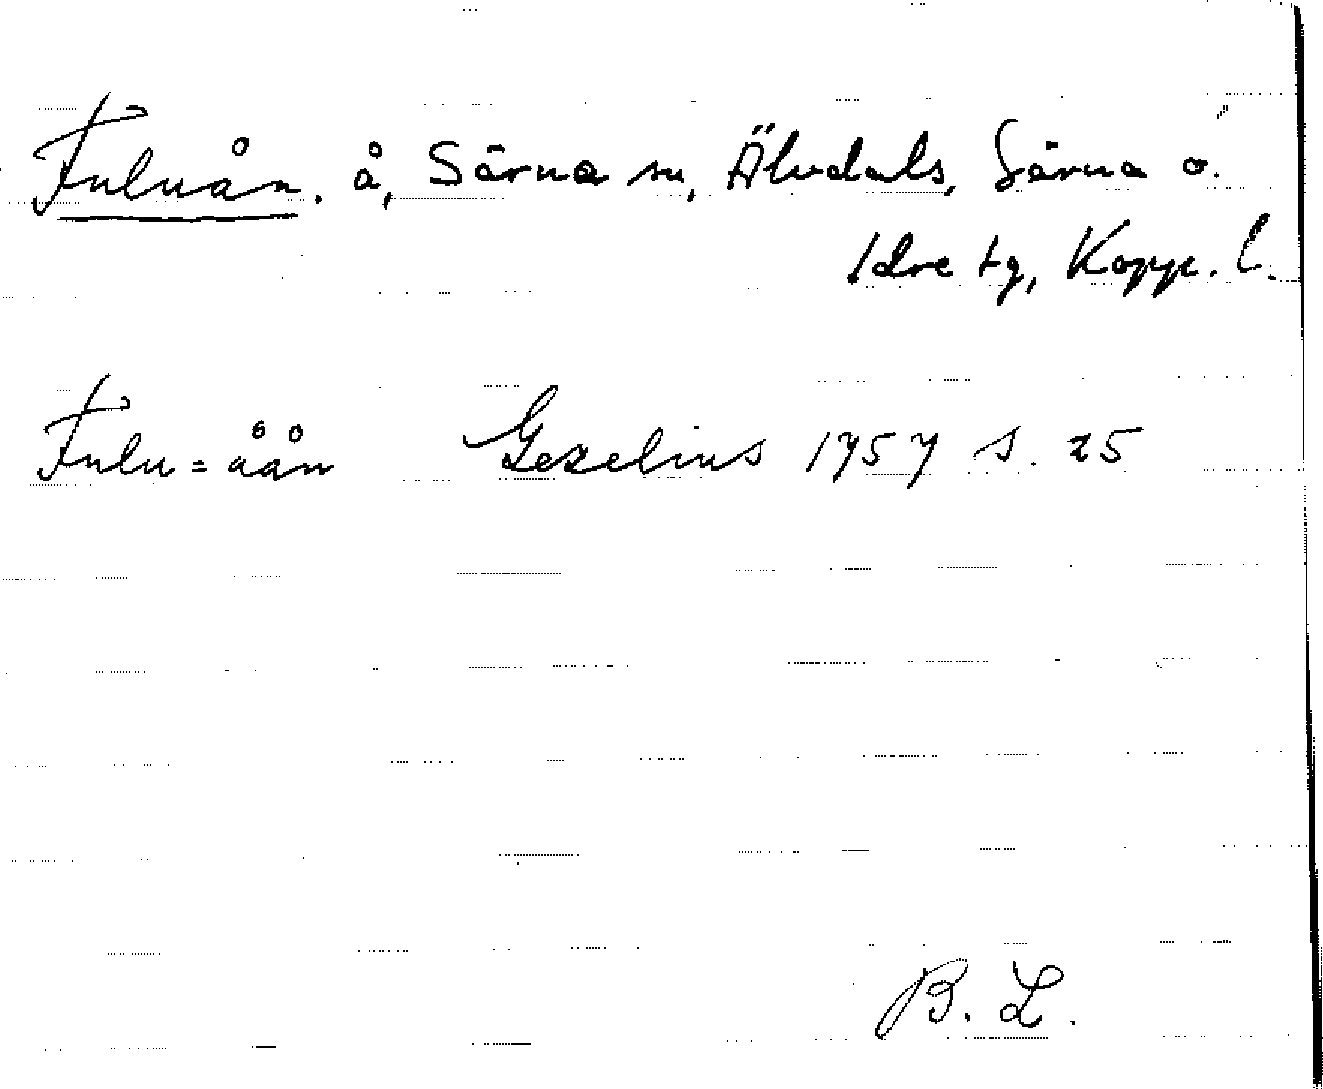 Fuluån. å, Särna sn, Älvdals, Särna o.
Idre tg, Kopp. l.
Fulu=åån Gezelius 1757 s. 25
B. L.